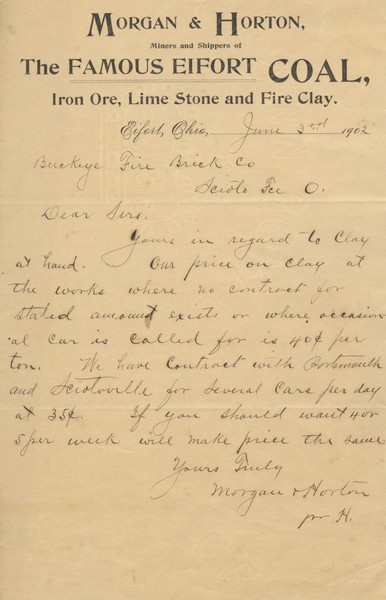 MORGAN & HORTON,
Miners and Shippers of
The FAMOUS EIFORT COAL,
Iron Ore, Lime Stone and Fire Clay.
Eifort, Ohio, June 3rd 1902
Buckeye Fire Brick Co
Scioto Fce O.
Dear Sirs.
Yours in regard to Clay
at hand. Our price on clay at
the works where no contract for
stated amount exists or where occasion
al car is called for is 40¢ per
ton. We have Contract with Portsmouth
and Sciotoville for several Cars per day
at 35¢. If you should want 4 or
5 per week will make price the same
Yours Truly
Morgan & Horton
pr H.